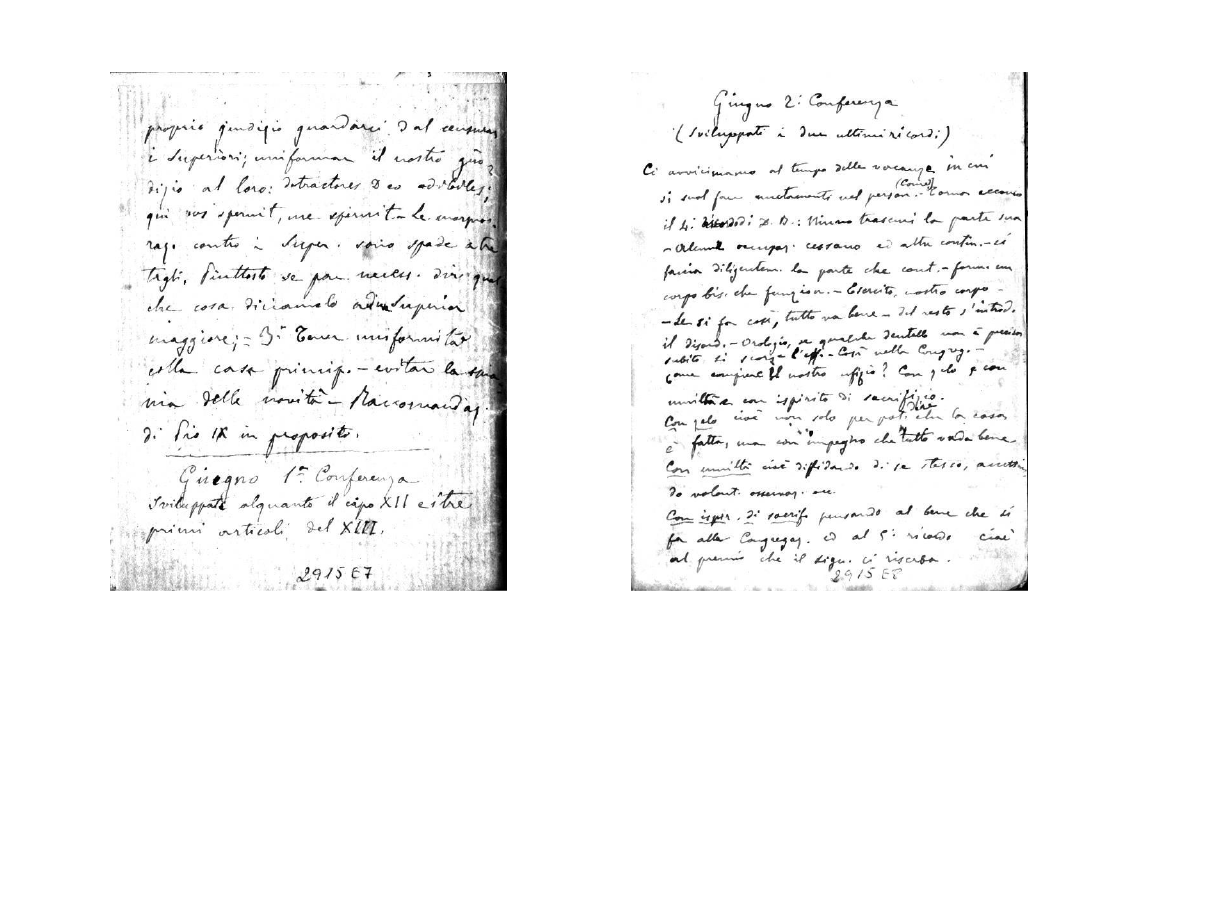 proprio giudizio guardarci dal censurar
i Superiori; uniformar il nostro giu-
dizio al loro: detractores Deo odibiles;
qui vos spernit, me spernit. Le
contro i Super. sono spade a tre
tagli, Piuttosto se par necess. dire qual
che cosa diciamolo ad un Superior
maggiore; - 3° Tener uniformità
colla casa princip. - evitar la sma
nia delle novità - Raccomandaz.
di Pio IX in proposito.
Giugno 1ª Conferenza
Sviluppate alquanto il capo XII e i tre
primi articoli del XIII.
2915 E7
Giugno 2ª Conferenza
(Sviluppati i due ultimi ricordi)
Ci avviciniamo al tempo delle vacanze in cui
si suol fare nel person.
(Comod)
il 4: di D. B.: Niuno trascuri la parte sua
cessano ed altri contin. - si
faccia diligentem. la parte che cont. - form. un
corpo bis. che funzion. - Esercito, nostro corpo -
- Se si fa così, tutto va bene - del resto s'introd.
il disord. - Orologio, se qualche dentello non è preciso
subito si - Così nella Congreg. -
Come compiere il nostro ufizio? Con zelo e con
umiltà e con ispirito di sacrifizio.
dire
Con zelo cioè non solo per pot. che la cosa
è fatta, ma con impegno che tutto vada bene
Con umiltà cioè diffidando di se stesso,
do volont. osservaz. ecc.
Con ispir. di sacrif. pensando al bene che si
fa alla Congregaz. ed al 5: ricordo cioè
al premio che il Sign. ci riserba.
2915 E8